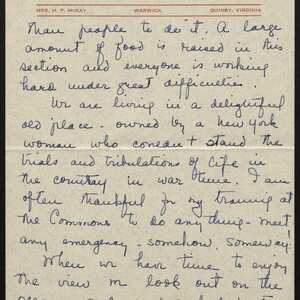 MRS. H. P. McKAY WARWICK QUINBY, VIRGINIA
than people to do it. A large
amount of food is raised in this
section and everyone is working
hard under great difficulties.
We are living in a delightful
old place - owned by a New York
woman who couldn't stand the
trials and tribulations of life in
the country in war time. I am
often thankful for my training at
the Commons to do any thing - meet
any emergency - somehow, someway!
When we have time to enjoy
the view we look out on the